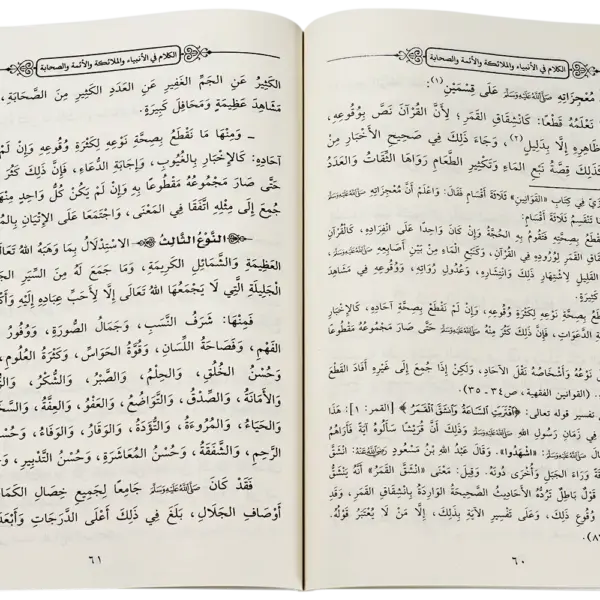 الكلام في الأنبياء والملائكة والأئمة والصحابة
مُعْجِزَاتِهِ ﷺ عَلَى قِسْمَيْنِ (١):
نَعْلَمُهُ قَطْعًا: كَانْشِقَاقِ القَمَرِ؛ لِأَنَّ القُرْآنَ نَصَّ بِوُقُوعِهِ،
ظَاهِرِهِ إِلَّا بِدَلِيلٍ (٢)، وَجَاءَ ذَلِكَ فِي صَحِيحِ الأَخْبَارِ مِنْ
كَذَلِكَ قِصَّةُ نَبْعِ المَاءِ وَتَكْثِيرِ الطَّعَامِ رَوَاهَا الثِّقَاتُ وَالعَدَدُ
فِي كِتَابِ «القَوَانِينِ» ثَلَاثَةَ أَقْسَامٍ فَقَالَ: وَاعْلَمْ أَنَّ مُعْجِزَاتِهِ ﷺ
تَنْقَسِمُ ثَلَاثَةَ أَقْسَامٍ:
بِصِحَّتِهِ فَتَقُومُ بِهِ الحُجَّةُ وَإِنْ كَانَ وَاحِدًا عَلَى انْفِرَادِهِ، كَالْقُرْآنِ
القَمَرِ لِوُرُودِهِ فِي القُرْآنِ، وَكَنَبْعِ المَاءِ مِنْ بَيْنِ أَصَابِعِهِ ﷺ،
القَلِيلِ لِاشْتِهَارِ ذَلِكَ وَانْتِشَارِهِ، وَعُدُولِ رُوَاتِهِ، وَوُقُوعِهِ فِي مَشَاهِدَ
كَثِيرَةٍ.
بِصِحَّةِ نَوْعِهِ لِكَثْرَةِ وُقُوعِهِ، وَإِنْ لَمْ نَقْطَعْ بِصِحَّةِ آحَادِهِ، كَالإِخْبَارِ
الدَّعَوَاتِ، فَإِنَّ ذَلِكَ كَثُرَ مِنْهُ ﷺ حَتَّى صَارَ مَجْمُوعُهُ مَقْطُوعًا
نَوْعُهُ وَأَشْخَاصُهُ نَقْلَ الآحَادِ، وَلَكِنْ إِذَا جُمِعَ إِلَى غَيْرِهِ أَفَادَ القَطْعَ
(القوانين الفقهية، ص٣٤ - ٣٥).
تفسير قوله تعالى: ﴿اقْتَرَبَتِ السَّاعَةُ وَانْشَقَّ الْقَمَرُ﴾ [القمر: ١]: هَذَا
فِي زَمَانِ رَسُولِ اللهِ ﷺ وَذَلِكَ أَنَّ قُرَيْشًا سَأَلُوهُ آيَةً فَأَرَاهُمُ
ﷺ: «اشْهَدُوا». وَقَالَ عَبْدُ اللهِ بْنُ مَسْعُودٍ رَضِيَ اللهُ عَنْهُ: انْشَقَّ
وَرَاءَ الجَبَلِ وَأُخْرَى دُونَهُ. وَقِيلَ: مَعْنَى «انْشَقَّ القَمَرُ» أَنَّهُ يَنْشَقُّ
قَوْلٌ بَاطِلٌ تَرُدُّهُ الأَحَادِيثُ الصَّحِيحَةُ الوَارِدَةُ بِانْشِقَاقِ القَمَرِ، وَقَدِ
وُقُوعِ ذَلِكَ، وَعَلَى تَفْسِيرِ الآيَةِ بِذَلِكَ، إِلَّا مَنْ لَا يُعْتَبَرُ قَوْلُهُ.
٦٠
الكلام في الأنبياء والملائكة والأئمة والصحابة
الكَثِيرُ عَنِ الجَمِّ الغَفِيرِ عَنِ العَدَدِ الكَثِيرِ مِنَ الصَّحَابَةِ،
مَشَاهِدَ عَظِيمَةٍ وَمَحَافِلَ كَبِيرَةٍ.
ـ وَمِنْهَا مَا نَقْطَعُ بِصِحَّةِ نَوْعِهِ لِكَثْرَةِ وُقُوعِهِ وَإِنْ لَمْ
آحَادِهِ: كَالإِخْبَارِ بِالغُيُوبِ، وَإِجَابَةِ الدُّعَاءِ، فَإِنَّ ذَلِكَ كَثُرَ
حَتَّى صَارَ مَجْمُوعُهُ مَقْطُوعًا بِهِ وَإِنْ لَمْ يَكُنْ كُلُّ وَاحِدٍ مِنْهَا
جُمِعَ إِلَى مِثْلِهِ اتَّفَقَا فِي المَعْنَى، وَاجْتَمَعَا عَلَى الإِتْيَانِ
النَّوْعُ الثَّالِثُ الاسْتِدْلَالُ بِمَا وَهَبَهُ اللهُ
العَظِيمَةِ وَالشَّمَائِلِ الكَرِيمَةِ، وَمَا جَمَعَ لَهُ مِنَ السِّيَرِ
الجَلِيلَةِ الَّتِي لَا يَجْمَعُهَا اللهُ تَعَالَى إِلَّا لِأَحَبِّ عِبَادِهِ إِلَيْهِ
فَمِنْهَا: شَرَفُ النَّسَبِ، وَجَمَالُ الصُّورَةِ، وَوُفُورُ
الفَهْمِ، وَفَصَاحَةُ اللِّسَانِ، وَقُوَّةُ الحَوَاسِّ، وَكَثْرَةُ العُلُومِ،
وَحُسْنُ الخُلُقِ، وَالحِلْمُ، وَالصَّبْرُ، وَالشُّكْرُ،
وَالأَمَانَةُ، وَالصِّدْقُ، وَالتَّوَاضُعُ، وَالعَفْوُ، وَالعِفَّةُ،
وَالحَيَاءُ، وَالمُرُوءَةُ، وَالتُّؤَدَةُ، وَالوَقَارُ، وَالوَفَاءُ،
الرَّحِمِ، وَالشَّفَقَةُ، وَحُسْنُ المُعَاشَرَةِ، وَحُسْنُ التَّدْبِيرِ،
فَقَدْ كَانَ ﷺ جَامِعًا لِجَمِيعِ خِصَالِ
أَوْصَافِ الجَلَالِ، بَلَغَ فِي ذَلِكَ أَعْلَى الدَّرَجَاتِ
٦١